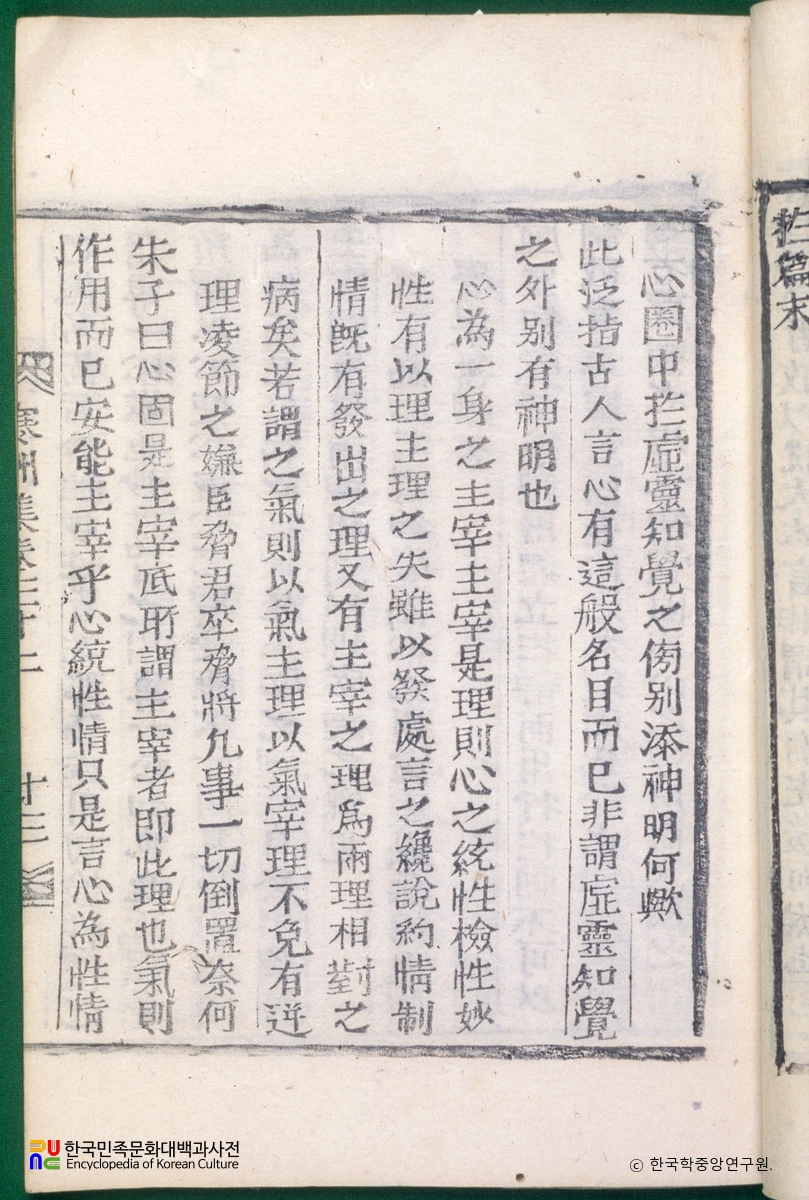 於篇末
心圈中於虛靈知覺之傍別添神明何歟
此泛指古人言心有這般名目而已非謂虛靈知覺
之外別有神明也
心為一身之主宰主宰是理則心之統性檢性妙
性有以理主理之失雖以發處言之纔說約情制
情旣有發出之理又有主宰之理爲兩理相對之
病矣若謂之氣則以氣主理以氣宰理不免有逆
理凌節之嫌臣脅君卒脅將凡事一切倒置奈何
朱子曰心固是主宰底所謂主宰者即此理也氣則
作用而已安能主宰乎心統性情只是言心為性情
寒洲集卷三十二
十三
한국민족문화대백과사전
Encyclopedia of Korean Culture
© 한국학중앙연구원.